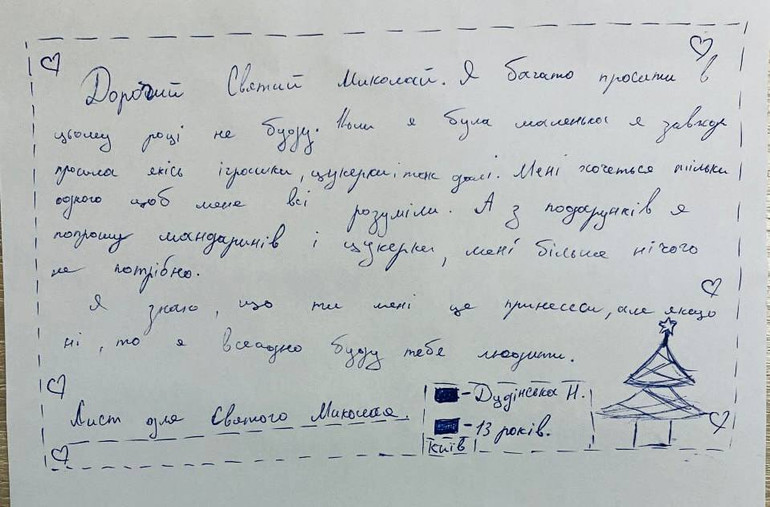 Дорогий Святий Миколай. Я багато просити в
цьому році не буду. Коли я була маленька я завжди
просила якісь іграшки, цукерки і так далі. Мені хочеться тільки
одного щоб мене всі розуміли. А з подарунків я
попрошу мандаринів і цукерки, мені більше нічого
не потрібно.
Я знаю, що ти мені це принесеш, але якщо
ні, то я всеодно буду тебе любити.
Лист для Святого Миколая.
- Дудінська Н.
- 13 років.
Київ